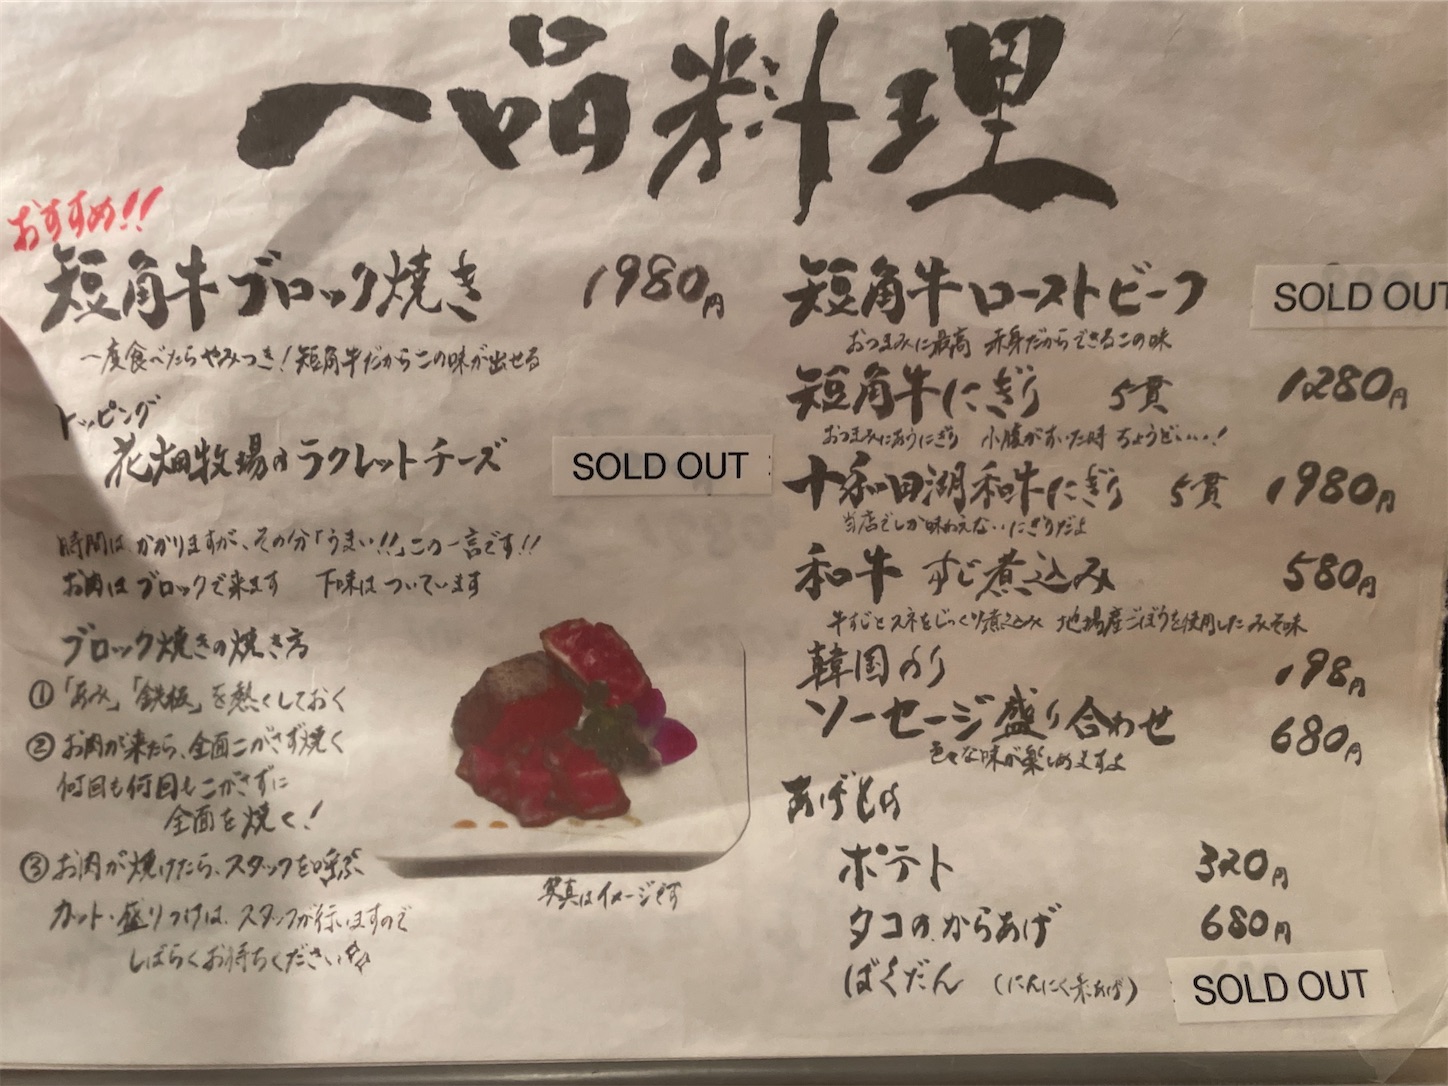 一品料理
おすすめ!!
短角牛ブロック焼き 1980円
一度食べたらやみつき!短角牛だからこの味が出せる
トッピング
花畑牧場のラクレットチーズ SOLD OUT
時間は かかりますが、その分「うまい!!」この一言です!!
お肉は ブロックで来ます 下味は ついています
ブロック焼きの焼き方
① 「あみ」「鉄板」を熱くしておく
② お肉が来たら、全面こがさず焼く
何回も何回もこがさずに
全面を焼く!
③ お肉が焼けたら、スタッフを呼ぶ
カット・盛りつけは、スタッフが行いますので
しばらくお待ちください
写真はイメージです
短角牛ローストビーフ SOLD OUT
おつまみに最高 赤身だからできるこの味
短角牛にぎり 5貫 1280円
おつまみにあうにぎり 小腹がすいた時 ちょうどいい!
十和田湖和牛にぎり 5貫 1980円
当店でしか味わえない にぎりだよ
和牛 すじ煮込み 580円
牛すじとスネをじっくり煮込み 地場産ごぼうを使用した みそ味
韓国のり 198円
ソーセージ盛り合わせ 680円
色々な味が楽しめますよ
あげもの
ポテト 320円
タコのからあげ 680円
ばくだん (にんにく素あげ) SOLD OUT